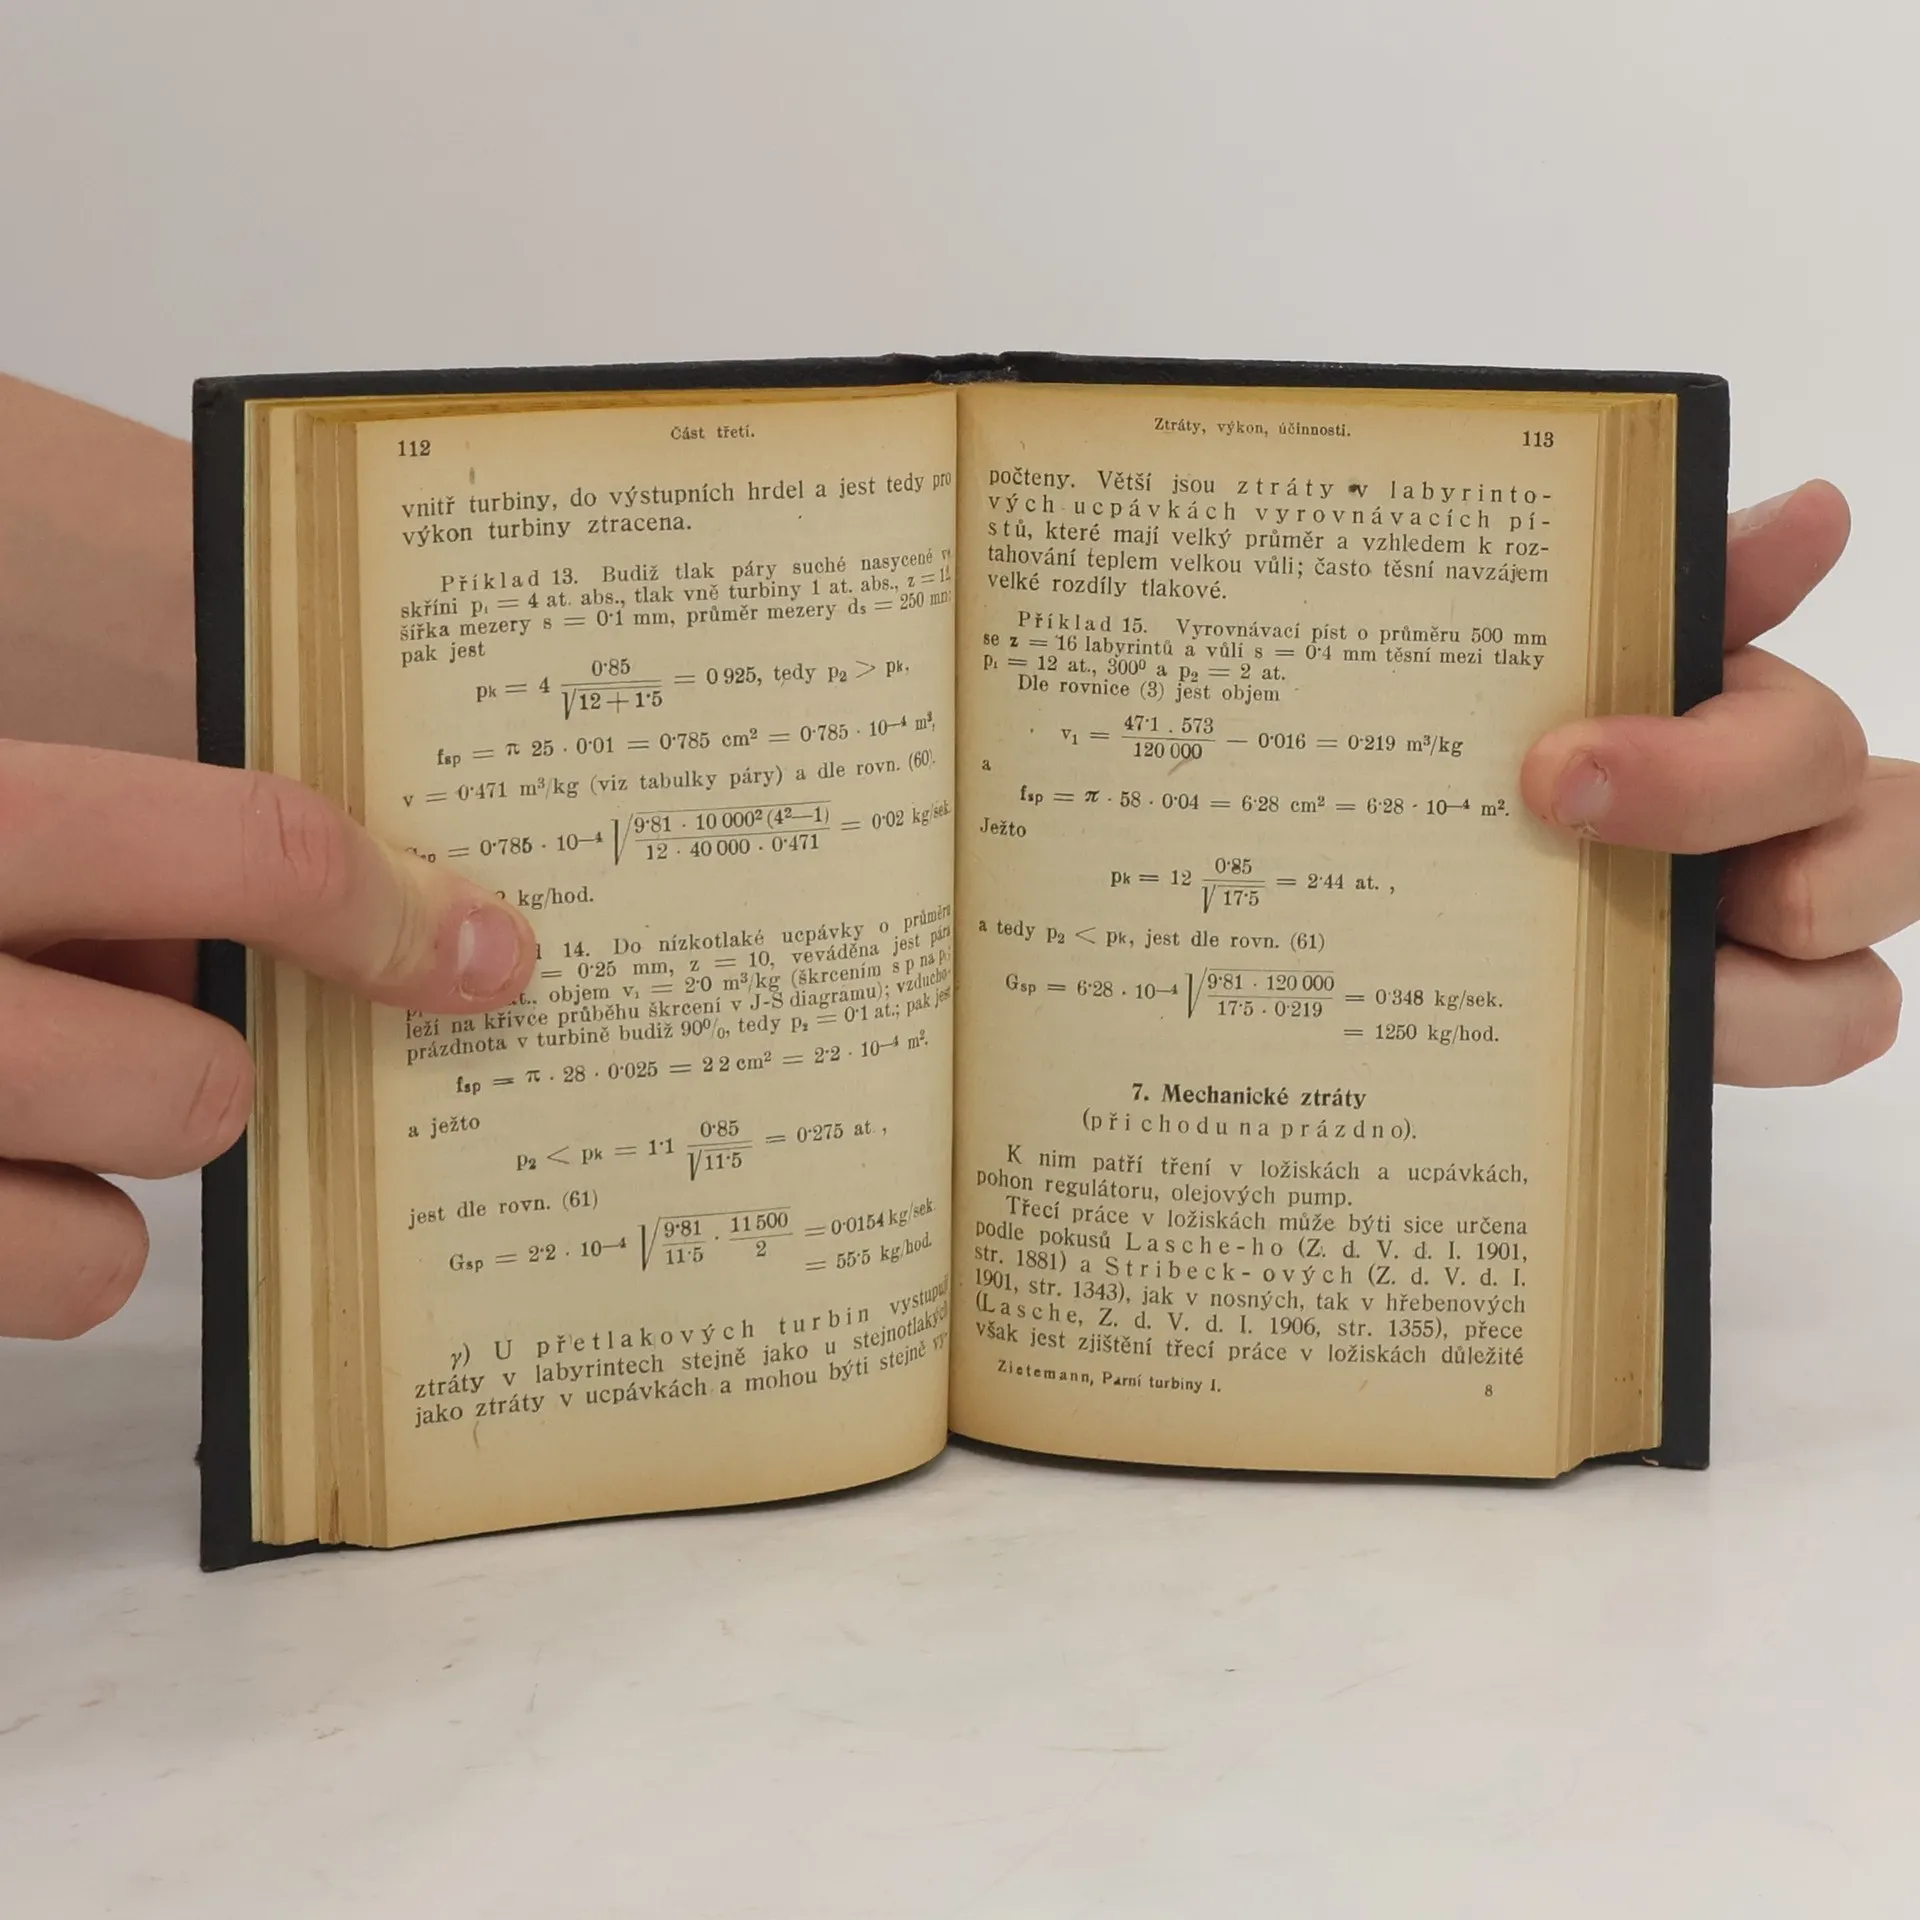 112
Část třetí.
vnitř turbiny, do výstupních hrdel a jest tedy pro
výkon turbiny ztracena.
Příklad 13. Budiž tlak páry suché nasycené
skříni p₁ = 4 at. abs., tlak vně turbiny 1 at. abs., z = 12
šířka mezery s = 0·1 mm, průměr mezery ds = 250 mm:
pak jest
pk = 4 0·85 / √12 + 1·5 = 0 925, tedy p₂ > pk,
fsp = π 25 · 0·01 = 0·785 cm² = 0·785 · 10—4 m²,
v = 0·471 m³/kg (viz tabulky páry) a dle rovn. (60).
= 0·785 · 10—4 √9·81 · 10 000² (4²—1) / 12 · 40 000 · 0·471 = 0·02 kg/sek.
kg/hod.
14. Do nízkotlaké ucpávky o průměru
= 0·25 mm, z = 10, veváděna jest pára
objem v₁ = 2·0 m³/kg (škrcením s p na p₁
leží na křivce průběhu škrcení v J-S diagramu); vzducho-
prázdnota v turbině budiž 90%, tedy p₂ = 0·1 at.; pak jest
fsp = π · 28 · 0·025 = 2 2 cm² = 2·2 · 10—4 m².
a ježto
p₂ < pk = 1·1 0·85 / √11·5 = 0·275 at.,
jest dle rovn. (61)
Gsp = 2·2 · 10—4 √9·81 / 11·5 · 11 500 / 2 = 0·0154 kg/sek.
= 55·5 kg/hod.
γ) U přetlakových turbin vystupují
ztráty v labyrintech stejně jako u stejnotlakých
jako ztráty v ucpávkách a mohou býti stejně vy-
Ztráty, výkon, účinnosti.
113
počteny. Větší jsou ztráty v labyrinto-
vých ucpávkách vyrovnávacích pí-
stů, které mají velký průměr a vzhledem k roz-
tahování teplem velkou vůli; často těsní navzájem
velké rozdíly tlakové.
Příklad 15. Vyrovnávací píst o průměru 500 mm
se z = 16 labyrintů a vůlí s = 0·4 mm těsní mezi tlaky
p₁ = 12 at., 300⁰ a p₂ = 2 at.
Dle rovnice (3) jest objem
v₁ = 47·1 . 573 / 120 000 — 0·016 = 0·219 m³/kg
a
fsp = π . 58 . 0·04 = 6·28 cm² = 6·28 · 10—4 m².
Ježto
pk = 12 0·85 / √17·5 = 2·44 at. ,
a tedy p₂ < pk, jest dle rovn. (61)
Gsp = 6·28 . 10—4 √9·81 · 120 000 / 17·5 . 0·219 = 0·348 kg/sek.
= 1250 kg/hod.
7. Mechanické ztráty
(při chodu na prázdno).
K nim patří tření v ložiskách a ucpávkách,
pohon regulátoru, olejových pump.
Třecí práce v ložiskách může býti sice určena
podle pokusů Lasche-ho (Z. d. V. d. I. 1901,
str. 1881) a Stribeck-ových (Z. d. V. d. I.
1901, str. 1343), jak v nosných, tak v hřebenových
(Lasche, Z. d. V. d. I. 1906, str. 1355), přece
však jest zjištění třecí práce v ložiskách důležité
Zietemann, Parní turbiny I.
8